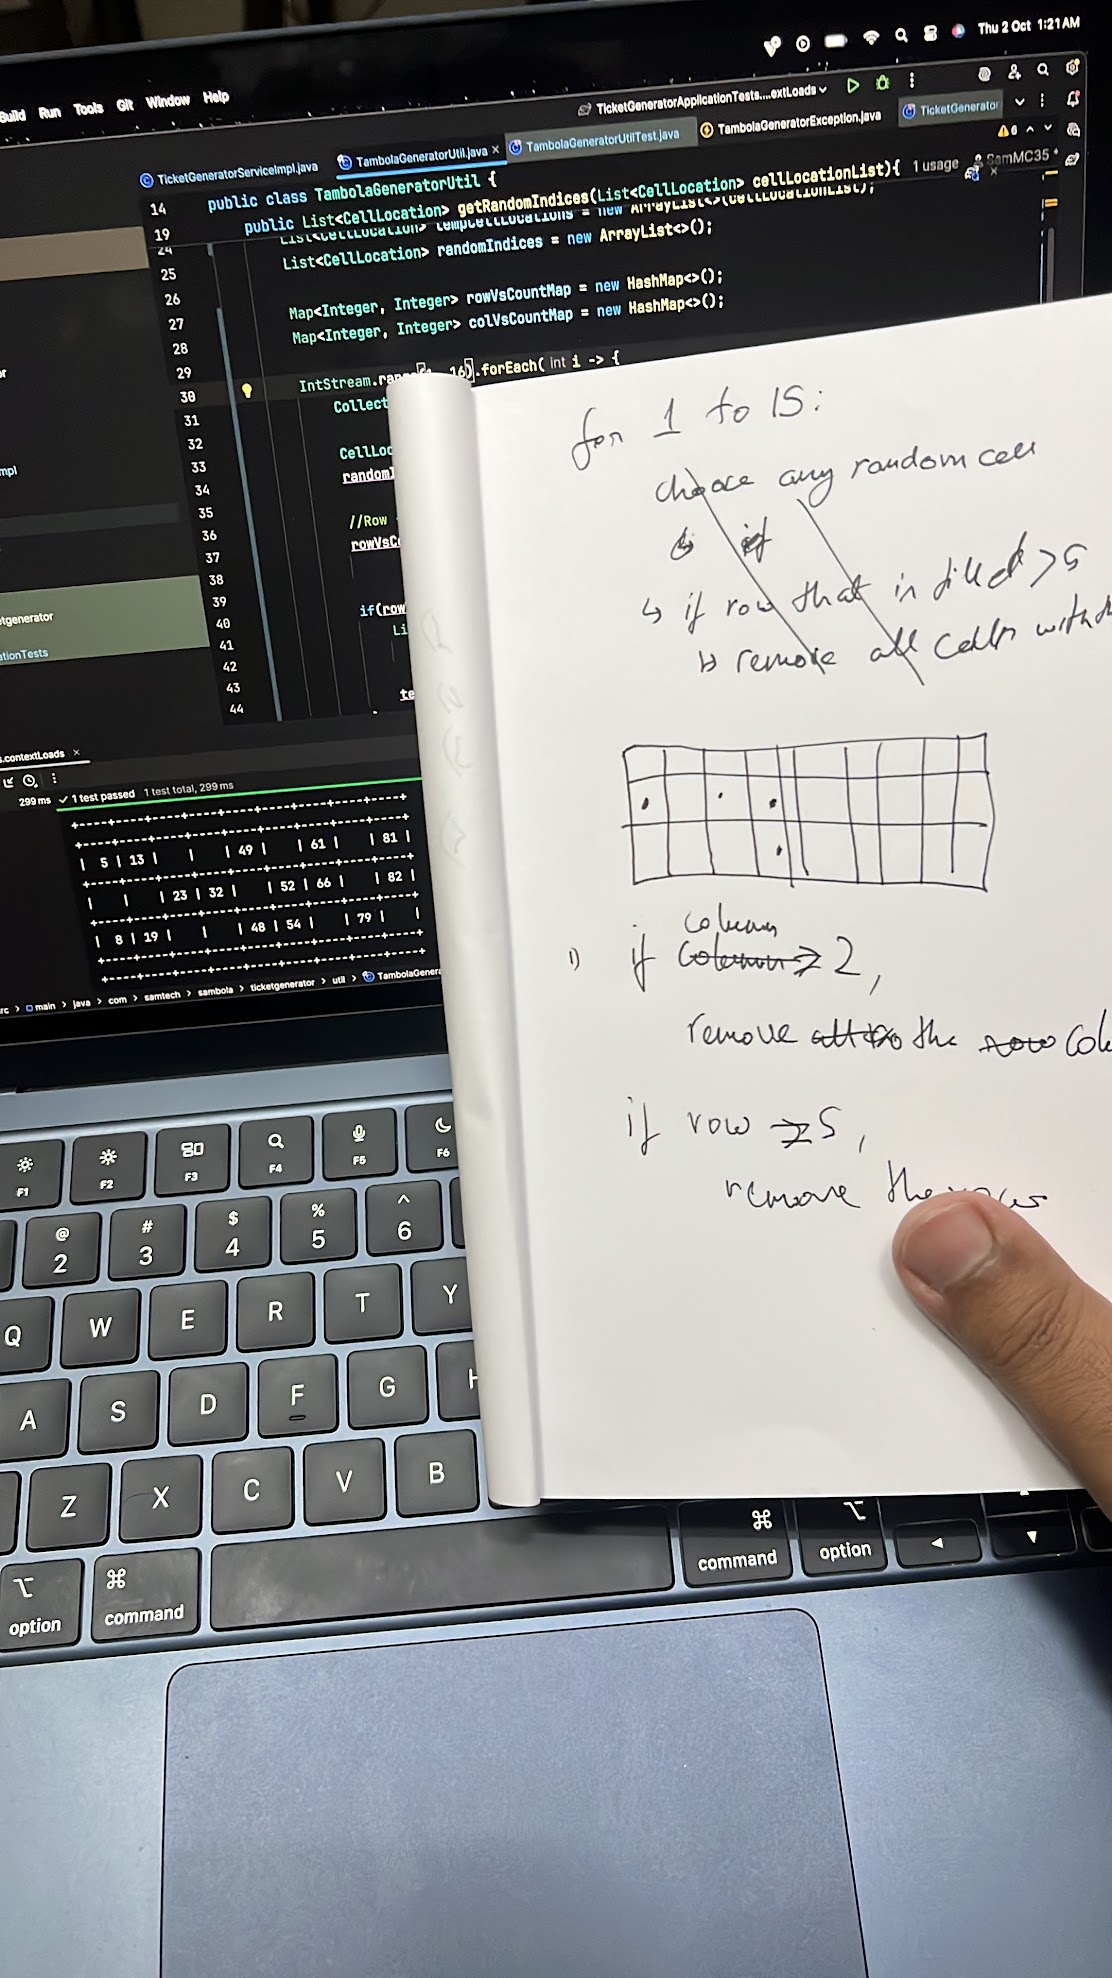 Thu 2 Oct 1:21 AM
Build Run Tools Git Window Help
TicketGeneratorApplicationTests....extLoads
TicketGeneratorServiceImpl.java TambolaGeneratorUtil.java × TambolaGeneratorUtilTest.java TambolaGeneratorException.java TicketGenerator
14 public class TambolaGeneratorUtil {
19 public List<CellLocation> getRandomIndices(List<CellLocation> cellLocationList){ 1 usage SamMC35 *
6
24 List<CellLocation> tempCellLocations = new ArrayList<>(cellLocationList);
25 List<CellLocation> randomIndices = new ArrayList<>();
26
27 Map<Integer, Integer> rowVsCountMap = new HashMap<>();
28 Map<Integer, Integer> colVsCountMap = new HashMap<>();
29
30 IntStream.ran 16).forEach( int i -> {
31 Collect
32
33 CellLoc
34 randomI
35
36 //Row
37 rowVsC
38
39
40 if(row
41 Li
42
43
44 te
mpl
etgenerator
ationTests
s.contextLoads ×
299 ms ✓ 1 test passed 1 test total, 299 ms
+----+----+----+----+----+----+----+----+----+
| 5 | 13 | | | 49 | | 61 | | 81 |
+----+----+----+----+----+----+----+----+----+
| | | 23 | 32 | | 52 | 66 | | 82 |
+----+----+----+----+----+----+----+----+----+
| 8 | 19 | | | 48 | 54 | | 79 | |
+----+----+----+----+----+----+----+----+----+
rc > main > java > com > samtech > sambola > ticketgenerator > util > TambolaGenera
for 1 to 15:
choose any random cell
if
↳ if row that is filled > 5
↳ remove all cells with
column
1) if column → 2,
remove the row col
if row 5,
remove the rows
F1 F2 F3 F4 F5 F6
@ # $ % ^
2 3 4 5 6
Q W E R T Y
A S D F G H
Z X C V B
⌥ ⌘ ⌘ ⌥
option command command option